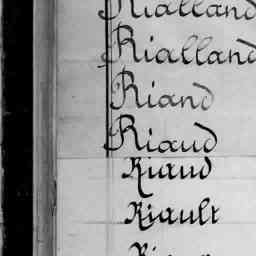 Rialland
Rialland
Riand
Riaud
Riaud
Riault